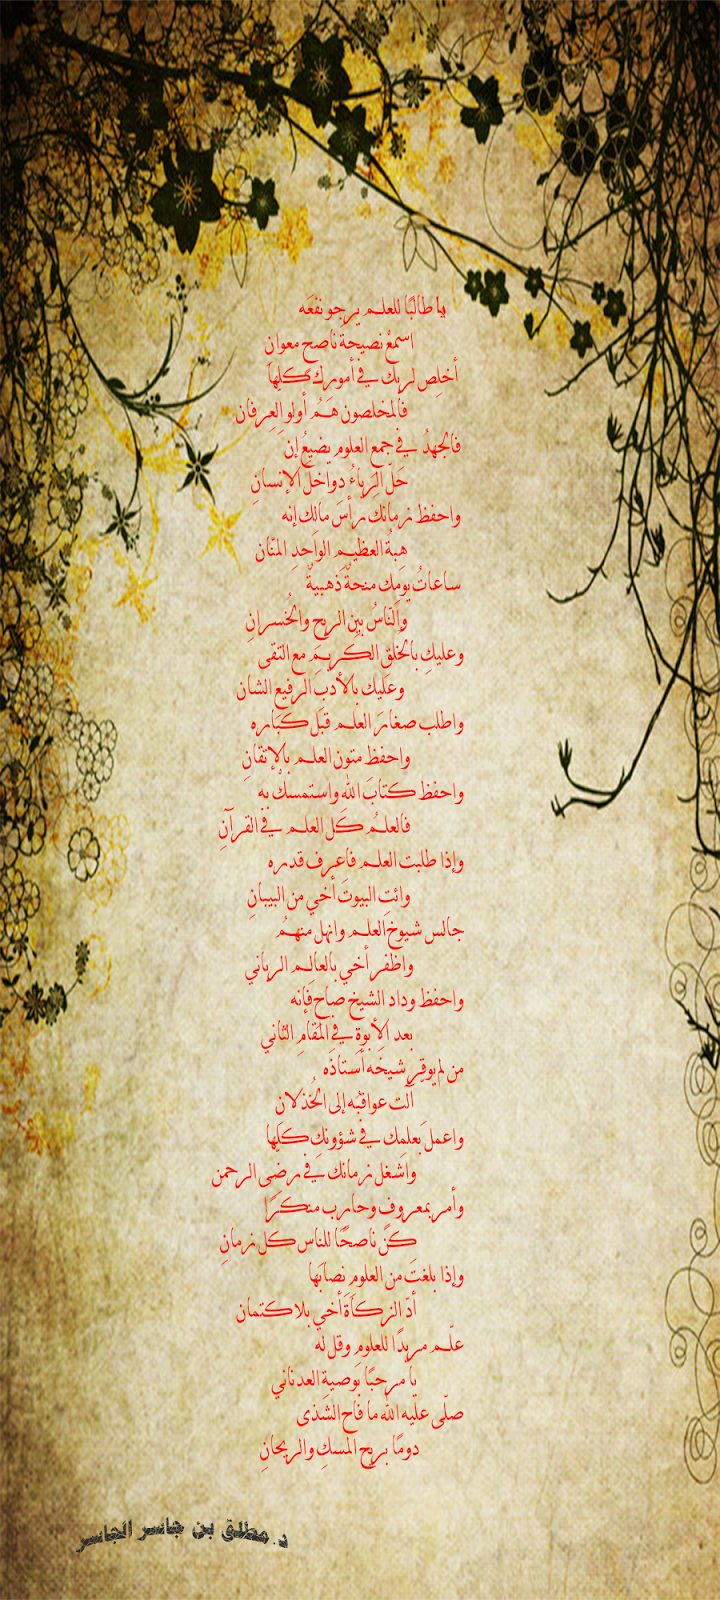 يا طالبًا للعلم يرجو نفعَه
اسمعْ نصيحةَ ناصحٍ معوانِ
أخلِص لربك في أمورك كلِها
فالمخلصون هَمُ أولو العِرفان
فالجهدُ في جمع العلوم يضيعُ إن
حَلّ الرياءُ دواخلَ الإنسانِ
واحفظ زمانك رأسَ مالك إنه
هِبةُ العظيمِ الواحدِ المنّان
ساعاتُ يومِك منحةٌ ذهبيةٌ
والنّاسُ بين الربحِ والخُسرانِ
وعليكِ بالخُلقِ الكريمَ مع التقى
وعليك بالأدبِ الرفيع الشان
واطلب صغارَ العلم قبل كبَاره
واحفظ متون العلم بالإتقانِ
واحفظ كتابَ الله واستمسكْ به
فالعلمُ كل العلم في القرآنِ
وإذا طلبت العلم فاعرف قدره
وائتِ البيوتَ أخي من البيبانِ
جالس شيوخَ العلم وانهل منهمُ
واظفر أخي بالعالم الرباني
واحفظ وداد الشيخ صاحِ فإنه
بعد الأبوةِ في المقامِ الثاني
من لم يوقِر شيخَه أستاذَه
آلت عواقبُه إلى الخُذلان
واعمل بعلمِك في شؤونك كلِّها
واشغل زمانك في رضى الرحمن
وأمر بمعروفٍ وحارب منكرًا
كنْ ناصحًا للناس كل زمانِ
وإذا بلغتَ من العلومِ نِصابَها
أدّ الزكاةَ أخي بلا كتمان
علّم مريدًا للعلوم وقل له
يا مرحبًا بوصيةِ العدناني
صلّى عليه الله ما فاح الشذى
دومًا بريح المسكِ والريحانِ
د. مطلق بن جاسر الجاسر